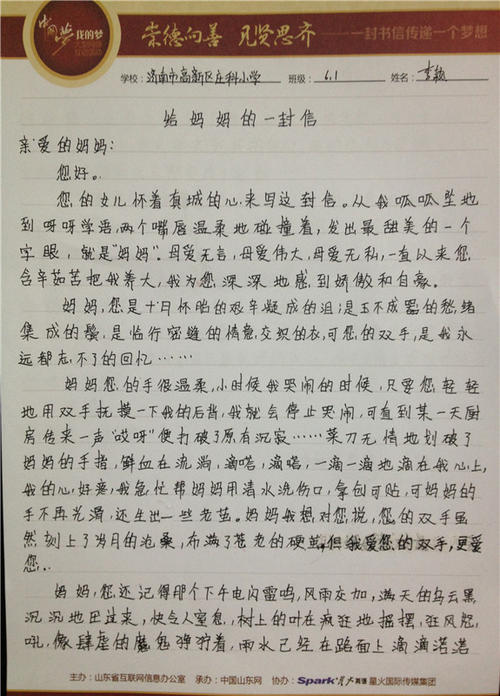 中国梦 我的梦
崇德向善 见贤思齐 ——一封书信传递一个梦想
学校:济南市高新区庄科小学 班级:6.1 姓名:李
给妈妈的一封信
亲爱的妈妈:
您好。
您的女儿怀着真城的心来写这封信。从我呱呱坠地
到呀呀学语,两个嘴唇温柔地碰撞着,发出最甜美的一个
字眼,就是“妈妈”。母爱无言,母爱伟大,母爱无私,一直以来您
含辛茹苦把我养大,我为您深深地感到娇傲和自豪。
妈妈,您是十月怀胎的艰辛凝成的泪;是玉不成器的愁绪
集成的鬓,是临行密缝的情意交织的衣,可您的双手,是我永
远都忘不了的回忆……
妈妈您的手很温柔,小时候我哭闹的时候,只要您轻轻
地用双手抚摸一下我的后背,我就会停止哭闹,可直到某一天厨
房传来一声“哎呀”便打破了原有沉寂……菜刀无情地划破了
妈妈的手指,鲜血在流淌,滴嗒,滴嗒,一滴一滴地滴在我心上,
我的心好疼,我急忙帮妈妈用清水洗伤口,拿创可贴,可妈妈的
手不再光滑,还生出一些老茧。妈妈我想对您说,您的双手虽
然刻上了岁月的沧桑,布满了苍老的硬茧,但我爱您的双手,更爱
您。
妈妈,您还记得那个下午电闪雷鸣,风雨交加,满天的乌云黑
沉沉地压过来,快令人窒息,树上的叶在疯狂地摇摆,狂风怒
吼,像肆虐的魔鬼狰狞着,雨水已经在路面上滴滴嗒嗒
主办:山东省互联网信息办公室 承办:中国山东网 协办:Spark 星火英语 星火国际传媒集团